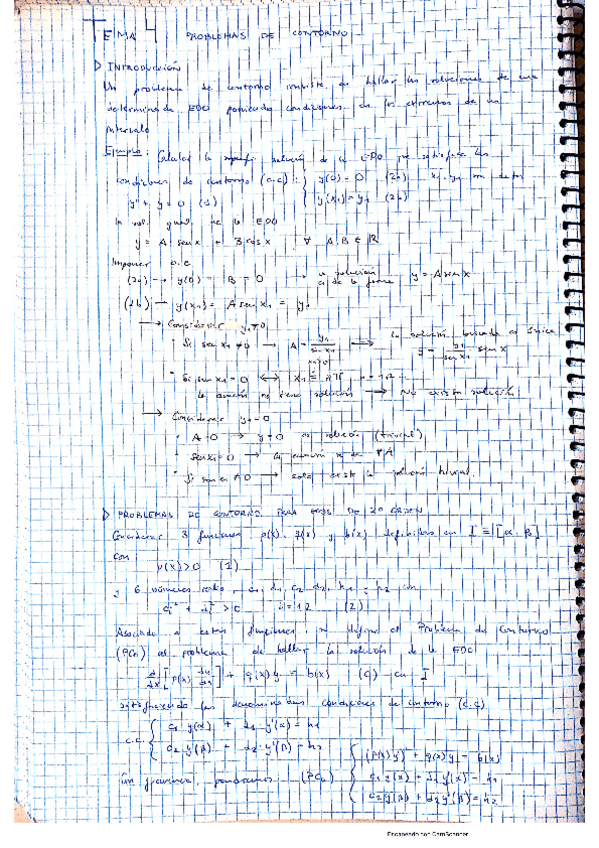 TEMA 4 PROBLEMAS DE CONTORNO
▷ INTRODUCCIÓN
Un problema de contorno consiste en hallar las soluciones de una
determinada EDO poniendo condiciones en los extremos de un
intervalo
Ejemplo: Calcular la solución de la EDO que satisface las
condiciones de contorno (c.c): { y(0) = 0 (2a) x₁, y₁ son datos
y'' + y = 0 (1) y(x₁) = y₁ (2b)
La sol. gnral. de la EDO
y = A sen x + B cos x ∀ A, B ∈ ℝ
Imponer c.c
(2a) → y(0) = B = 0 → la solución es de la forma y = A sen x
(2b) → y(x₁) = A sen x₁ = y₁
→ Considerar y₁ ≠ 0
• Si sen x₁ ≠ 0 → A = y₁/sen x₁ ⟹ la solución buscada es única
y = y₁/sen x₁ · sen x
• Si sen x₁ = 0 ⟷ x₁ = nπ n = 1,2
la ecuación no tiene solución → No existe solución
→ Considerar y₁ = 0
• A = 0 → y = 0 es solución (trivial)
• sen x₁ = 0 → la ecuación se ∀A
• Si sen x₁ ≠ 0 → solo existe la solución trivial
▷ PROBLEMAS DE CONTORNO PARA EDOS DE 2º ORDEN
Considerar 3 funciones p(x), q(x) y b(x) definidas en I = [α, β]
con:
p(x) > 0 (1)
y 6 números reales, c₁, d₁, c₂, d₂, h₁, h₂ con
cᵢ² + dᵢ² > 0 i = 1,2 (2)
Asociado a estas funciones, se define el Problema de Contorno
(PC) al problema de hallar la solución de la EDO
d/dx [p(x) dy/dx] + q(x) y = b(x) en I
satisfaciendo las denominadas condiciones de contorno (c.c)
c.c { c₁ y(α) + d₁ y'(α) = h₁
c₂ y(β) + d₂ y'(β) = h₂
(PC) { (p(x) y')' + q(x) y = b(x)
c₁ y(α) + d₁ y'(α) = h₁
c₂ y(β) + d₂ y'(β) = h₂
Escaneado con CamScanner